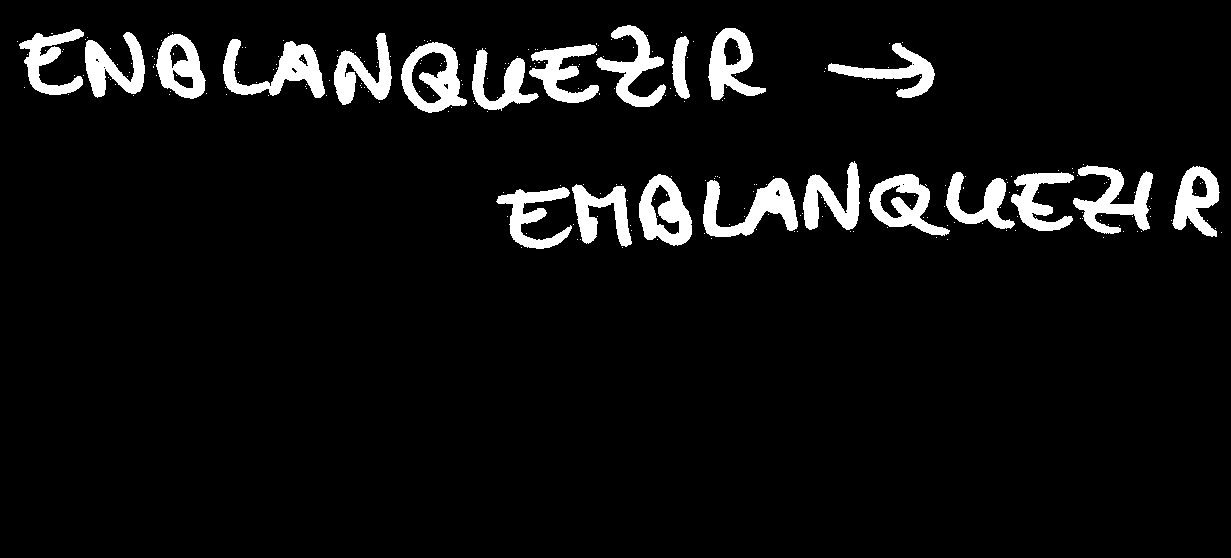 ENBLANQUEZIR →
EMBLANQUEZIR